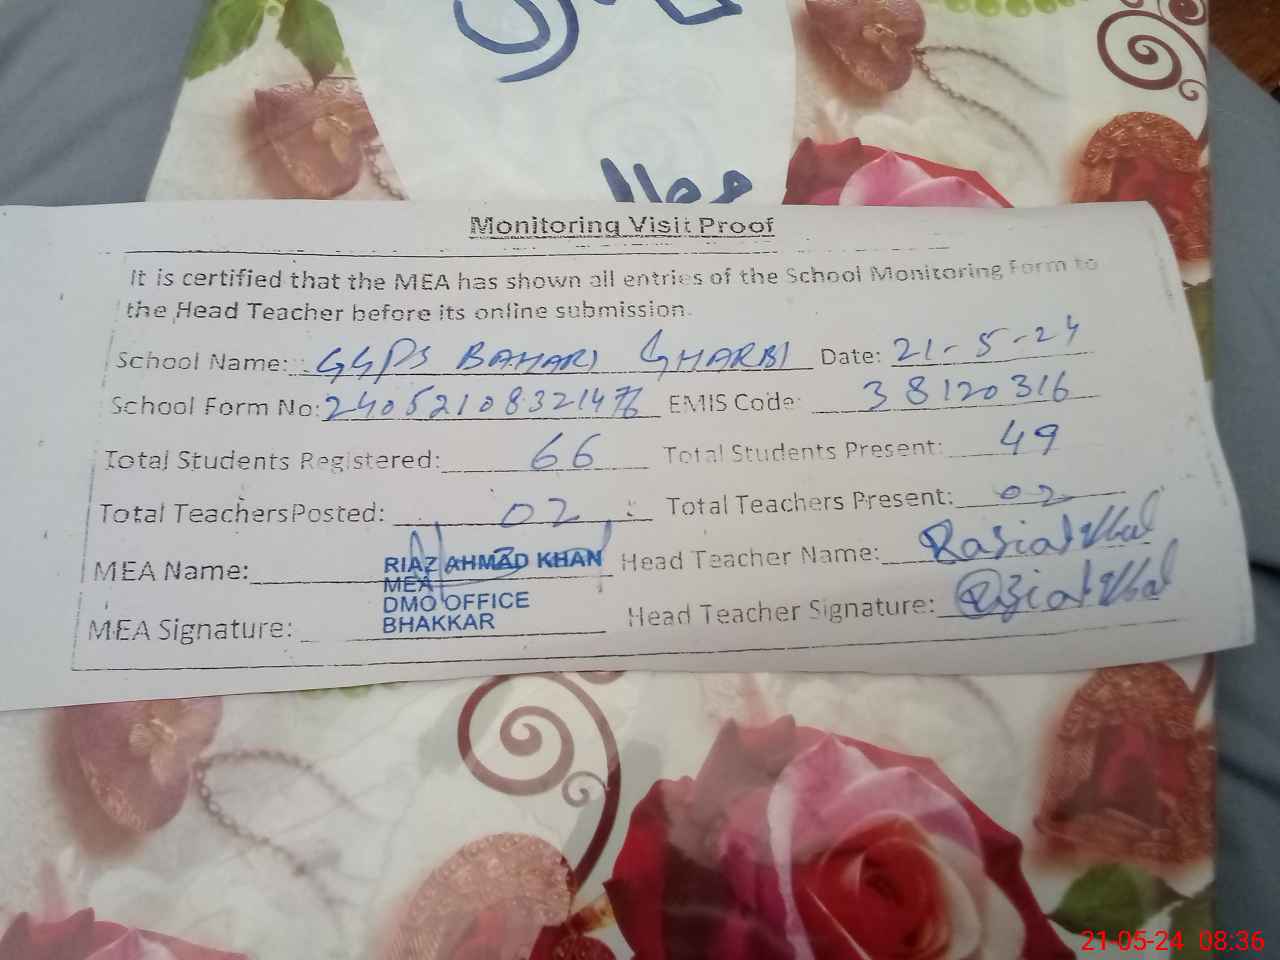 Monitoring Visit Proof
It is certified that the MEA has shown all entries of the School Monitoring Form to
the Head Teacher before its online submission.
School Name: GGPS BAHARI GHARBI Date: 21-5-24
School Form No: EMIS Code: 38120316
Total Students Registered: 66 Total Students Present: 49
Total Teachers Posted: 02 Total Teachers Present: 02
MEA Name: RIAZ AHMAD KHAN Head Teacher Name: Razia Iqbal
MEA
DMO OFFICE
MEA Signature: BHAKKAR Head Teacher Signature: Razia Iqbal
21-05-24 08:36